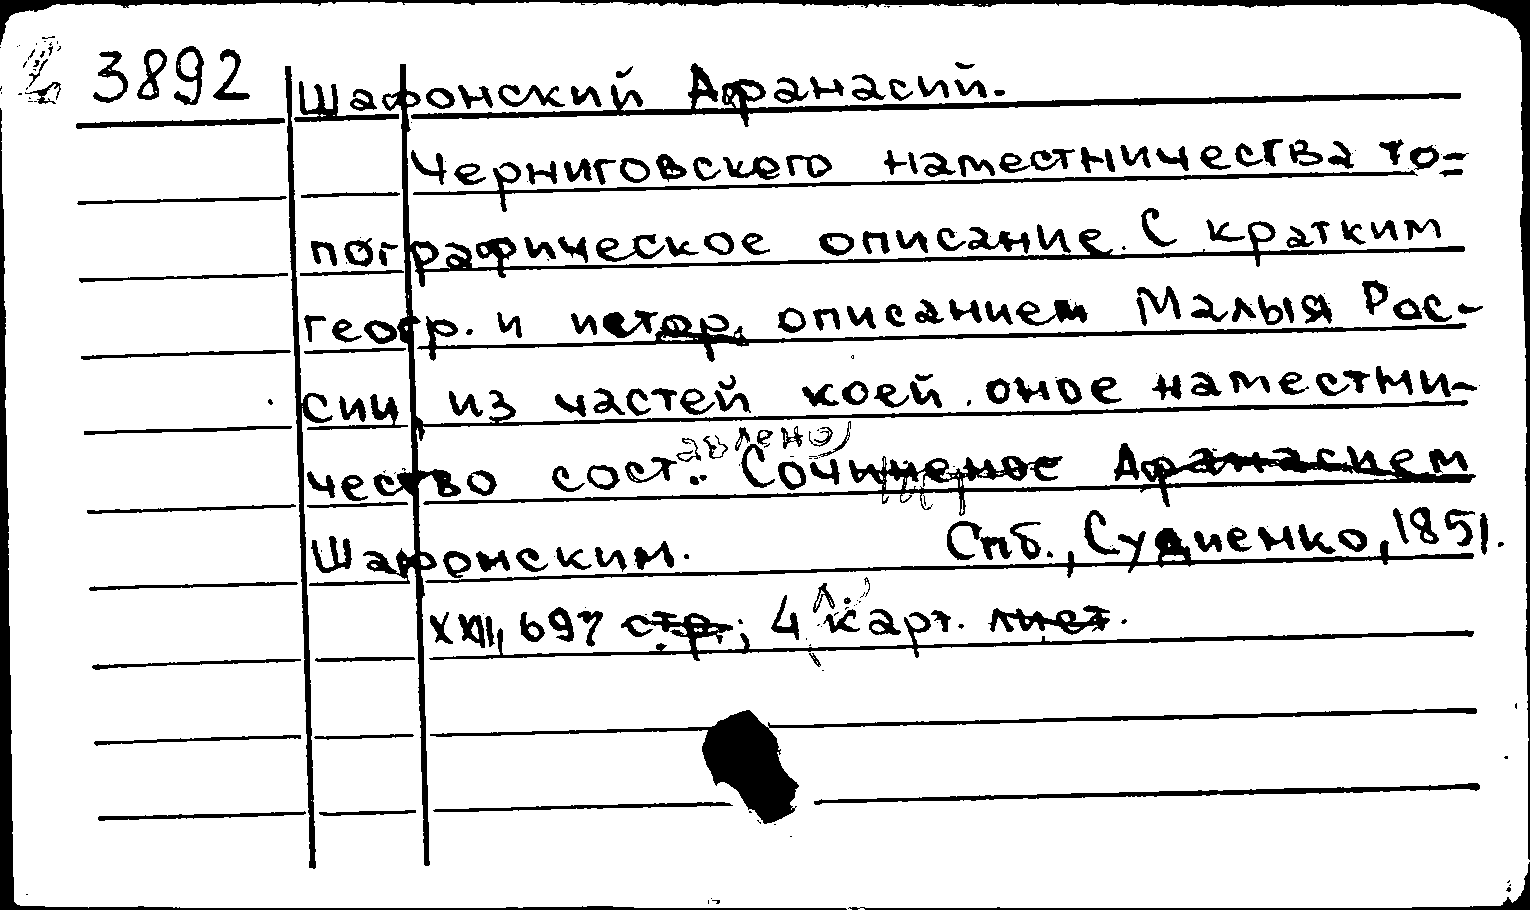 3892 Шафонский Афанасий.
Черниговского наместничества то-
пографическое описание. С кратким
геогр. и истор. описанием Малыя Рос-
сии, из частей коей оное наместни-
чество составлено. Сочиненое Афанасием
Шафонским. Спб., Судиенко, 1851.
XXII, 697 стр.; 4 л. карт. лист.